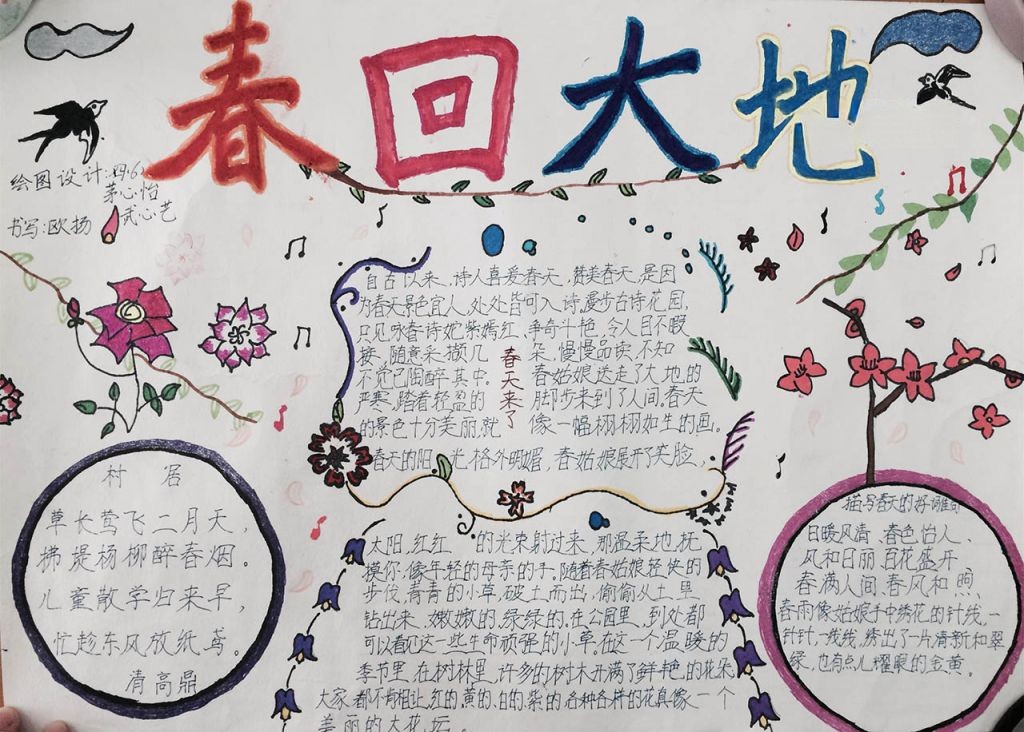 春回大地
绘图设计:四·6
茅心怡
武心艺
书写:欧扬
自古以来,诗人喜爱春天,赞美春天,是因
为春天景色宜人,处处皆可入诗,漫步古诗花园,
只见咏春诗姹紫嫣红,争奇斗艳,令人目不暇
接,随意采撷几朵,慢慢品读,不知
不觉已陶醉其中。春姑娘送走了大地的
严寒,踏着轻盈的脚步来到了人间。春天
的景色十分美丽,就像一幅栩栩如生的画。
春天的阳光格外明媚,春姑娘展开了笑脸,
春天来了
太阳,红红的光束射过来,那温柔地抚
摸你,像年轻的母亲的手。随着春姑娘轻快的
步伐,青青的小草,破土而出,偷偷从土里
钻出来,嫩嫩的,绿绿的,在公园里,到处都
可以看见这一些生命顽强的小草,在这一个温暖的
季节里,在树林里,许多的树木开满了鲜艳的花朵
大家都不肯相让,红的、黄的、白的、紫的,各种各样的花真像一个
美丽的大花坛。
村居
草长莺飞二月天,
拂堤杨柳醉春烟。
儿童散学归来早,
忙趁东风放纸鸢。
清高鼎
描写春天的好词佳句
日暖风清、春色怡人、
风和日丽、百花盛开、
春满人间、春风和煦、
春雨像姑娘手中绣花的针线,一
针针,一线线,绣出了一片清新和翠
绿,也有点儿耀眼的金黄。